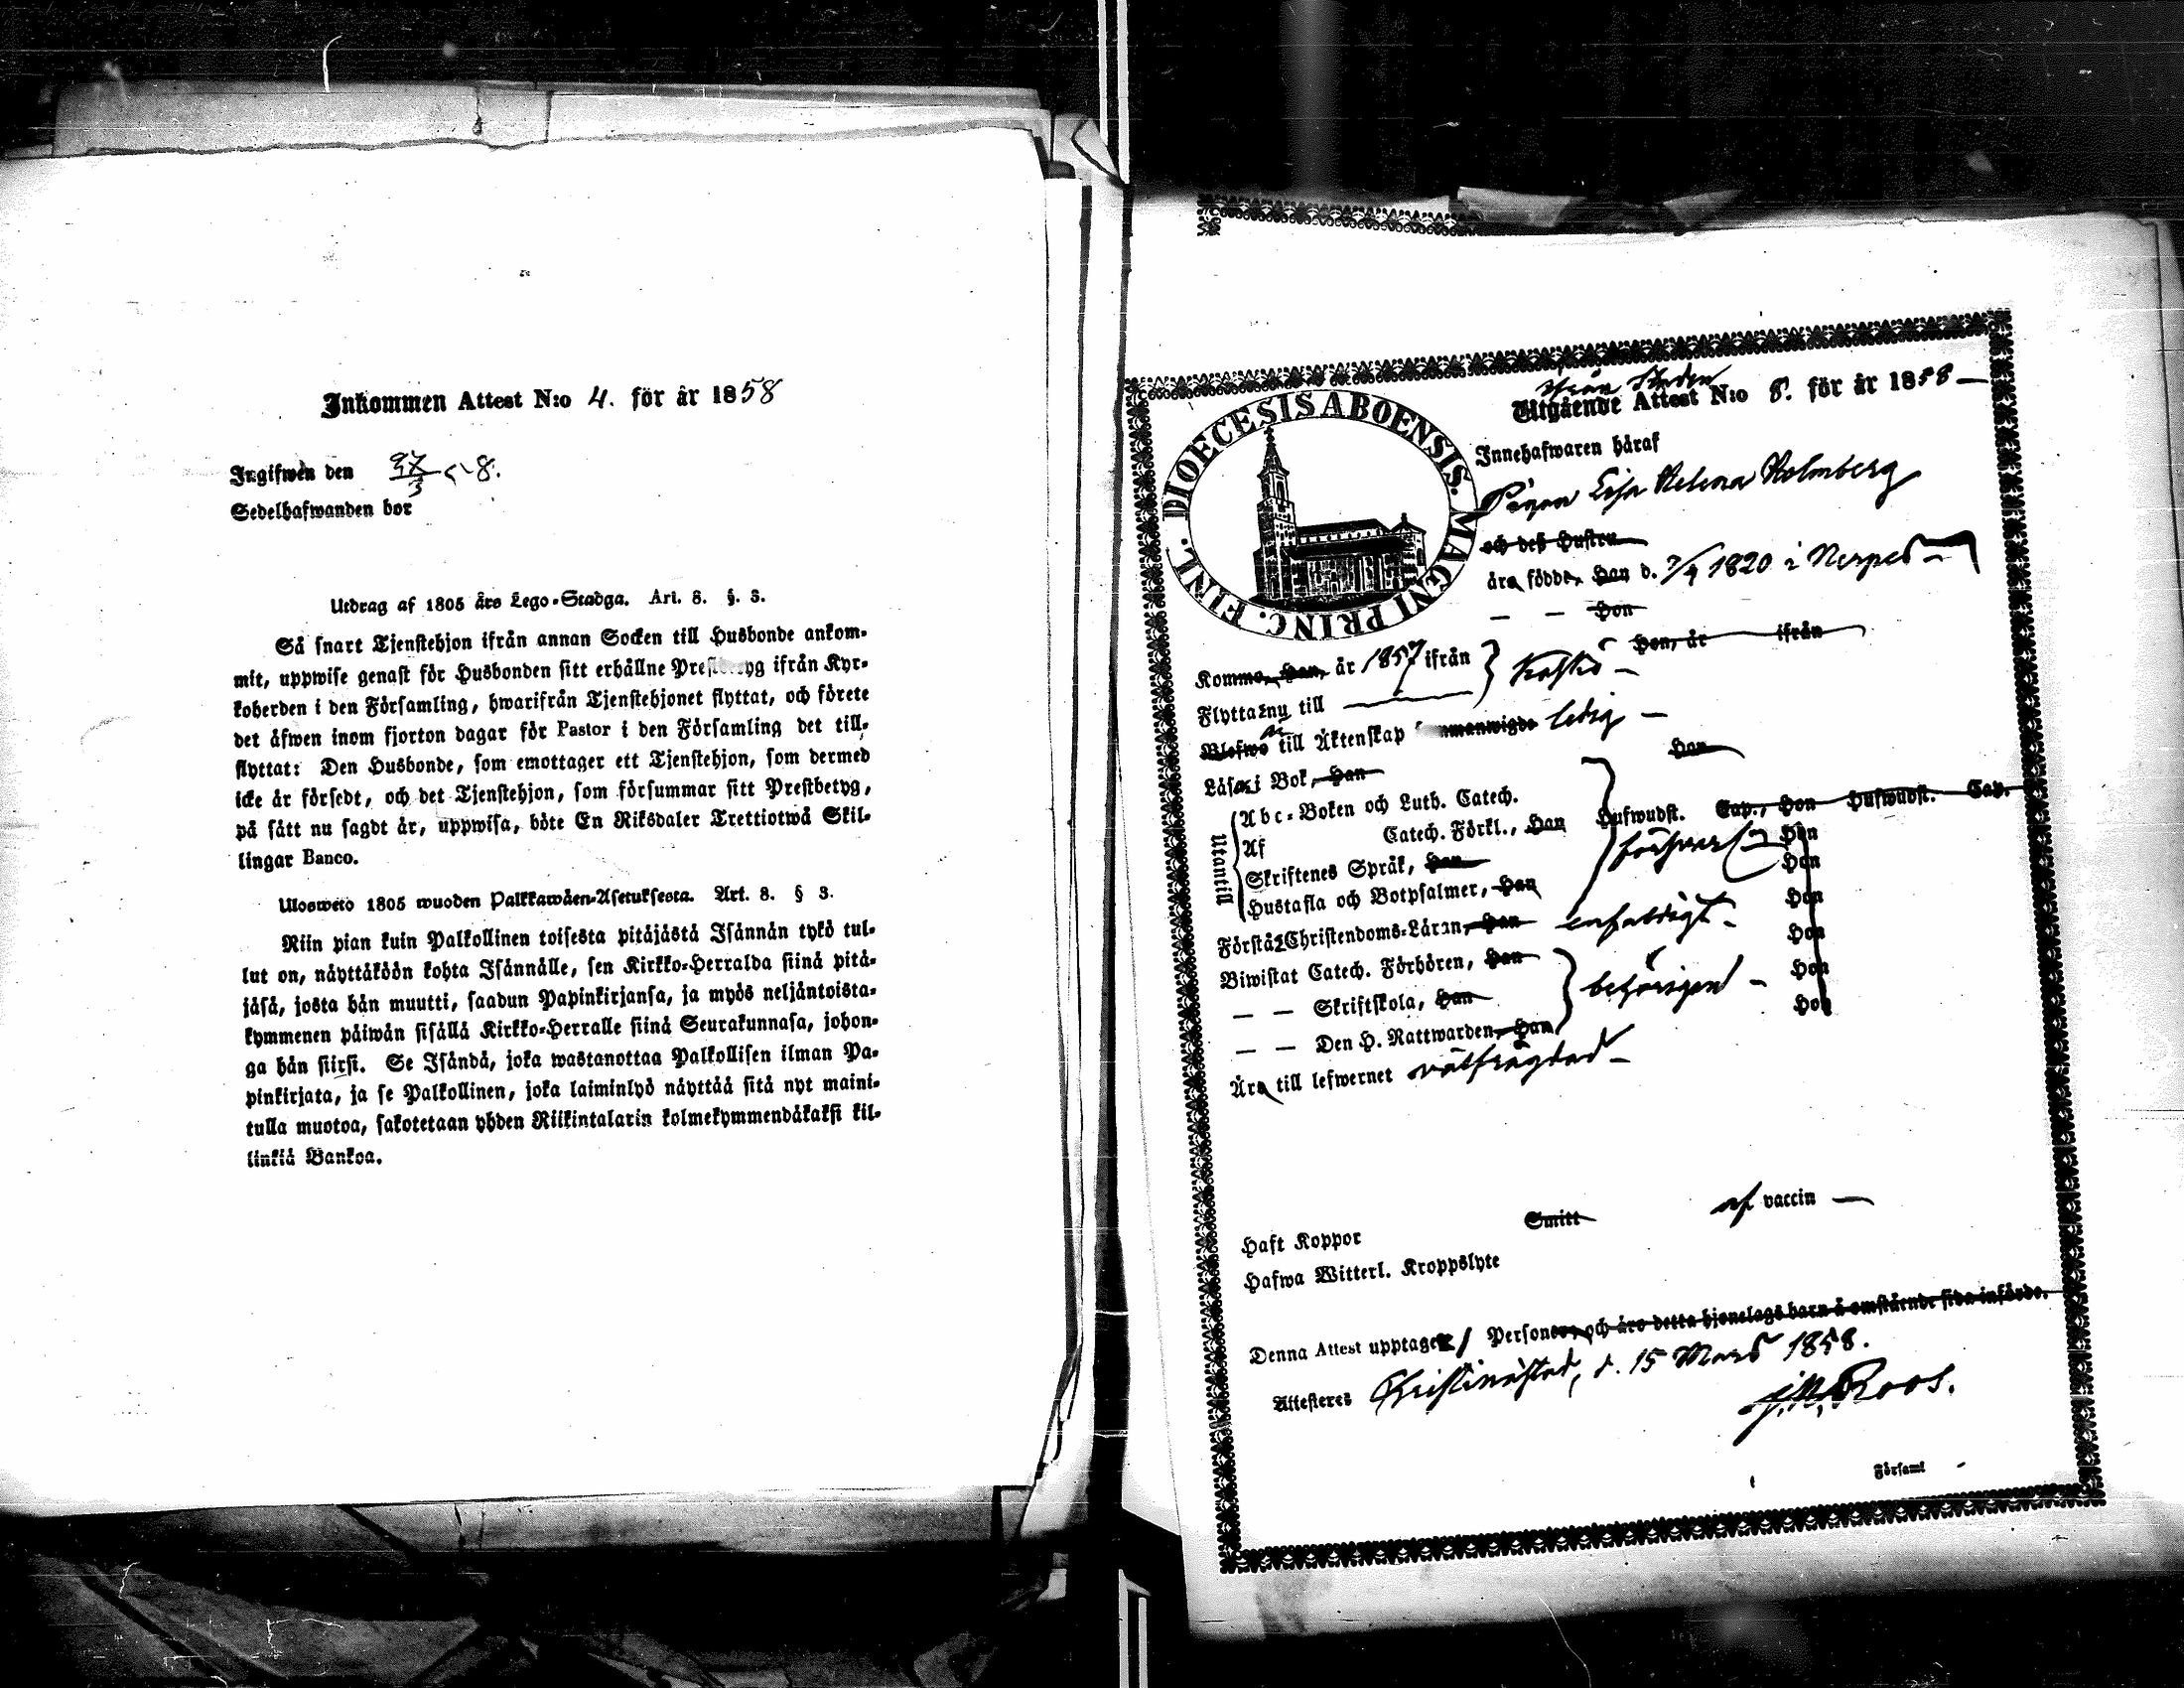 Inkommen Attest N:o 4. för år 1858
Ingifwen den 27/3 58.
Sedelhafwanden bor
Utdrag af 1805 års Lego-Stadga. Art. 8. §. 3.
Så snart Tjenstehjon ifrån annan Socken till Husbonde ankom-
mit, uppwise genast för Husbonden sitt erhållne Prestbetyg ifrån Kyr-
koherden i den Församling, hwarifrån Tjenstehjonet flyttat, och förete
det äfwen inom fjorton dagar för Pastor i den Församling det till-
flyttat: Den Husbonde, som emottager ett Tjenstehjon, som dermed
icke är försedt, och det Tjenstehjon, som försummar sitt Prestbetyg,
på sätt nu sagdt är, uppwisa, böte En Riksdaler Trettiotwå Skil-
lingar Banco.
Ulosweto 1805 wuoden Palkkawäen-Asetuksesta. Art. 8. § 3.
Niin pian kuin Palkollinen toisesta pitäjästä Isännän tykö tul-
lut on, näyttäköön kohta Isännälle, sen Kirkko-Herralda siinä pitä-
jäsä, josta hän muutti, saadun Papinkirjansa, ja myös neljäntoista-
kymmenen päiwän sisällä Kirkko-Herralle siinä Seurakunnasa, johon-
ga hän siirsi. Se Isändä, joka wastanottaa Palkollisen ilman Pa-
pinkirjata, ja se Palkollinen, joka laiminlyö näyttää sitä nyt maini-
tulla muotoa, sakotetaan yhden Riikintalarin kolmekymmendäkaksi kil-
linkiä Bankoa.
DIOECESIS ABOENSIS. MAGNI PRINC. FINL.
från Staden
Utgående Attest N:o 8. för år 1858
Innehafwaren häraf
Pigan Lisa Helena Holmberg
och deß Hustru
äro födde, Han d. 7/4 1820 i Nerpes
— — Hon
Komme, Han, år 1857 ifrån } Kaskö Hon, år ifrån
Flytta nu till
Blefwo till Äktenskap ledig
Läsa i Bok, Han Hon
Utantill
Abc-Boken och Luth. Catech.
Af Catech. Förkl., Han Hufwudst. Cap., Hon Hufwudst. Cap.
Skriftenes Språk, Han Hon
Hustafla och Botpsalmer, Han Hon
Förstå Christendoms-Läran, Han enfaldigt Hon
Biwistat Catech. Förhören, Han Hon
— — Skriftskola, Han behörigen Hon
— — Den H. Nattwarden, Han Hon
Äro till lefwernet välfrägdad
Haft Koppor Smitt af vaccin
Hafwa Witterl. Kroppslyte
Denna Attest upptager 1 Personer och äro detta hjonelags barn å omstående sida införde.
Attesteres Christinestad, d. 15 Mars 1858.
J. N. Roos.
Församl